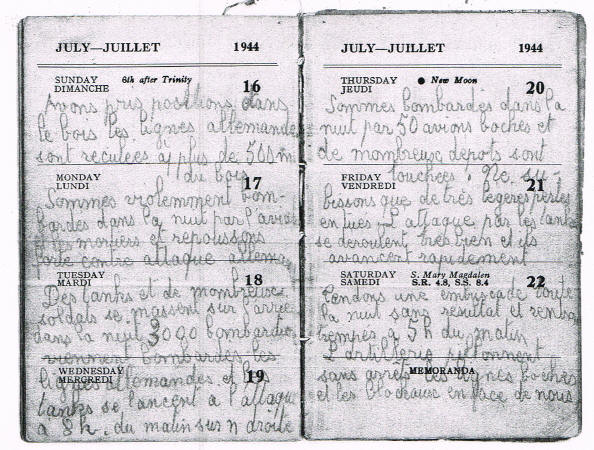 JULY—JUILLET 1944
SUNDAY 6th after Trinity 16
DIMANCHE
Avons pris positions dans
le bois les lignes allemandes
sont reculées à plus de 500 m
du bois
MONDAY 17
LUNDI
Sommes violemment bom-
bardés dans la nuit par l'aviat
et les mortiers et repoussons
forte contre attaque allema
TUESDAY 18
MARDI
Des tanks et de nombreux
soldats se massent sur l'arriè
dans la nuit 3000 bombardier
viennent bombardés les
WEDNESDAY 19
MERCREDI
lignes allemandes et les
tanks se lancent a l'attaque
a 8h. du matin sur n droite
JULY—JUILLET 1944
THURSDAY ● New Moon 20
JEUDI
Sommes bombardés dans la
nuit par 50 avions boches et
de nombreux depots sont
touchées. Ne su-
FRIDAY 21
VENDREDI
bissons que de très légères pertes
en tués L'attaque par les tanks
se deroulent très bien et ils
avancent rapidement
SATURDAY S. Mary Magdalen 22
SAMEDI S.R. 4.8, S.S. 8.4
Tendons une embuscade toute
la nuit sans résultat et rentrons
trempés a 5h du matin
L'artillerie
MEMORANDA
sans arrêt les lignes boches
et les blockaus en face de nous